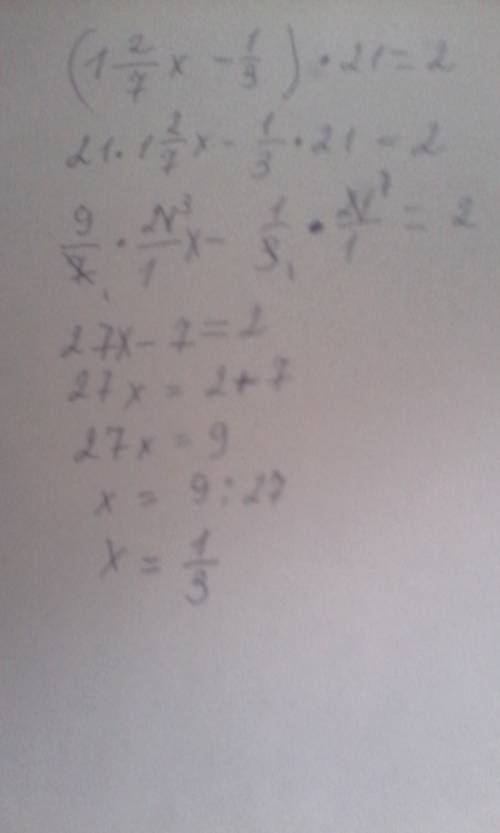 (1 2/7 x - 1/3) · 21 = 2
21 · 1 2/7 x - 1/3 · 21 = 2
9/7 1 · 21 3/1 x - 1/3 1 · 21 7/1 = 2
27x - 7 = 2
27x = 2 + 7
27x = 9
x = 9 : 27
x = 1/3